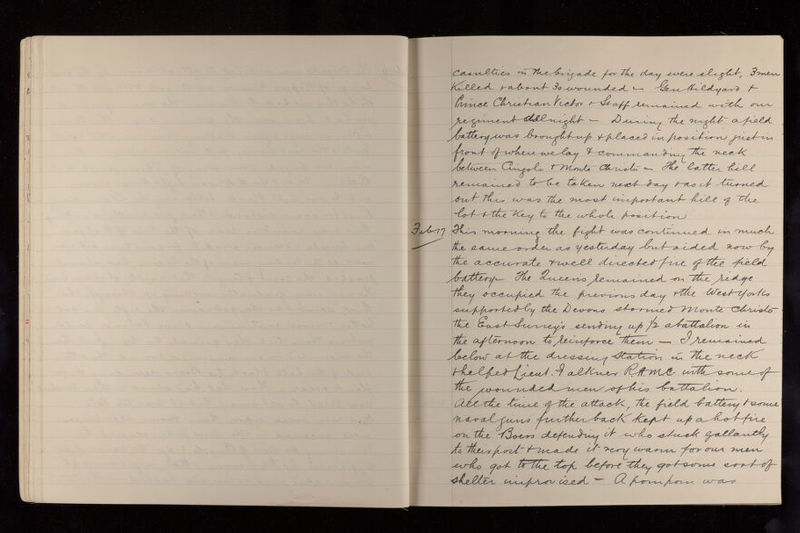 casualties in the brigade for the day were slight, 3 men
killed & about 30 wounded — Gen Hildyard &
Prince Christian Victor & Staff remained with our
regiment all night — During the night a field
battery was brought up & placed in position just in
front of where we lay & commanding the neck
between Cingolo & Monte Christo — The latter hill
remained to be taken next day & as it turned
out this was the most important hill of the
lot & the key to the whole position
Feb 17 This morning the fight was continued in much
the same order as yesterday but aided now by
the accurate & well directed fire of the field
battery — The Queens remained on the ridge
they occupied the previous day & the West Yorks
supported by the Devons stormed Monte Christo
the East Surreys sending up 1/2 a battalion in
the afternoon to reinforce them — I remained
below at the dressing station in the neck
& helped Lieut. Falkner R.A.M.C. with some of
the wounded men of his battalion.
All the time of the attack, the field battery & some
naval guns further back kept up a hot fire
on the Boers defending it who stuck gallantly
to their post & made it very warm for our men
who got to the top before they got some sort of
shelter improvised — A pompom was